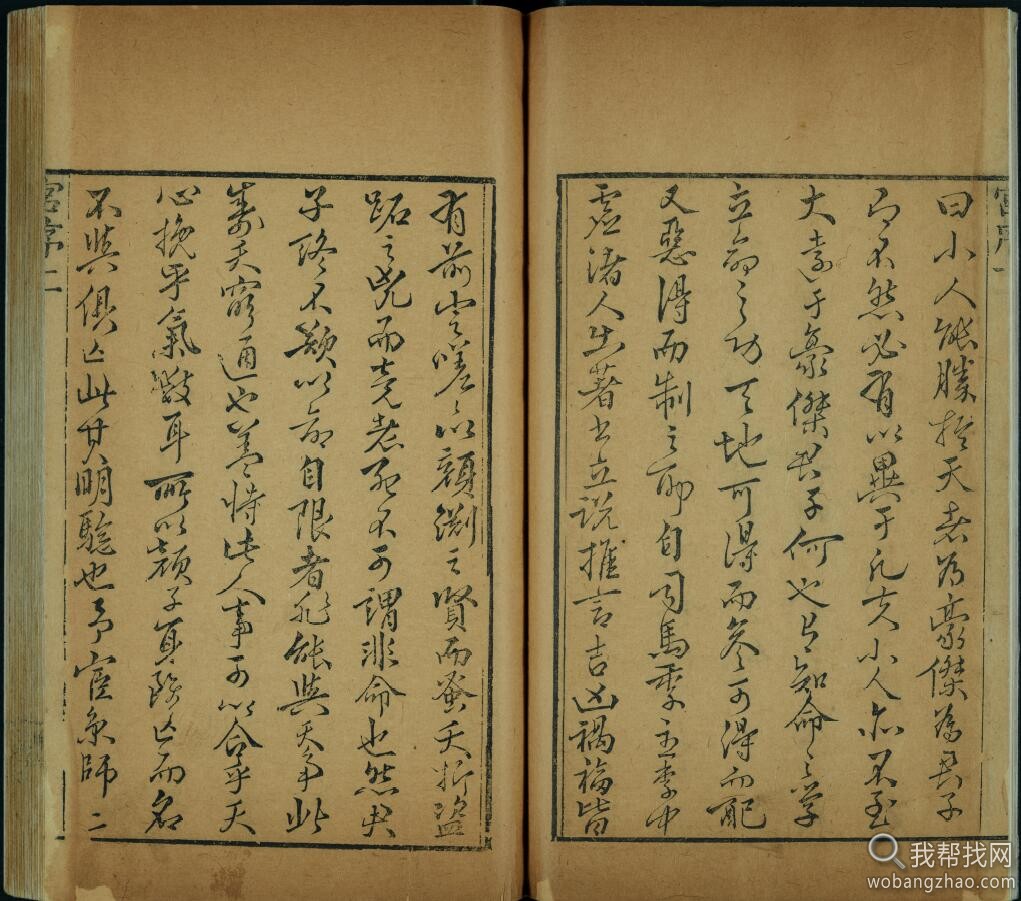 曰小人能勝於天者為豪傑為君子
乃不然必有以異于凡夫小人亦不至
大遠于豪傑君子何也曰知命之學
立命之功天地可得而參可得而配
又惡得而制之耶自司馬季主李中
虛諸人出著書立說推言吉凶禍福皆
有前定嗟嗟以顏淵之賢而蚤夭折盜
跖之兇而竟老死不可謂非命也然君
子終不以命自限者非能與天爭此
壽夭窮通也蓋恃此人事可以合乎天
心挽乎氣數耳所以顏子身雖亡而名
不與俱亡此其明驗也予宦京師 二
我帮找网
wobangzhao.com